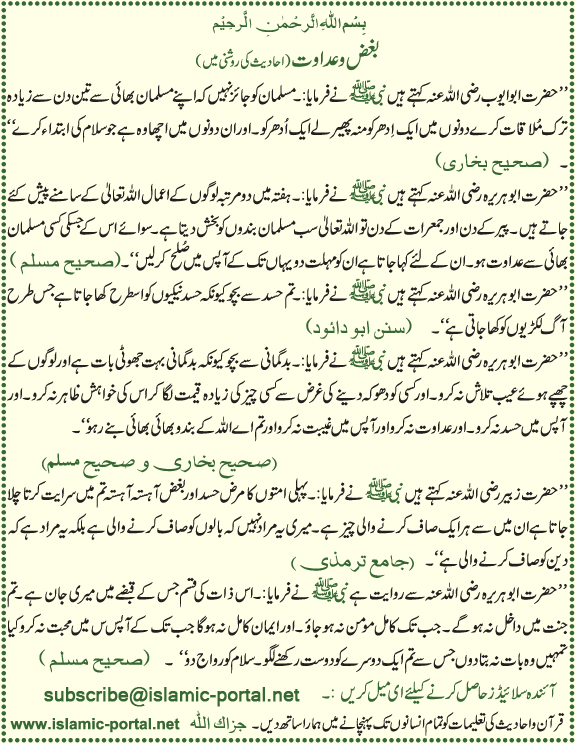 بِسْمِ اللهِ الرَّحْمٰنِ الرَّحِيْمِ
بغض و عداوت (احادیث کی روشنی میں)
’’حضرت ابو ایوب رضی اللہ عنہ کہتے ہیں نبی ﷺ نے فرمایا:۔ مسلمان کو جائز نہیں کہ اپنے مسلمان بھائی سے تین دن سے زیادہ
ترک مُلاقات کرے دونوں میں ایک اِدھر کو منہ پھیر لے ایک اُدھر کو۔ اور ان دونوں میں اچھا وہ ہے جو سلام کی ابتداء کرے‘‘
۔ (صحیح بخاری)
’’حضرت ابو ہریرہ رضی اللہ عنہ کہتے ہیں نبی ﷺ نے فرمایا:۔ ہفتہ میں دو مرتبہ لوگوں کے اعمال اللہ تعالیٰ کے سامنے پیش کئے
جاتے ہیں۔ پیر کے دن اور جمعرات کے دن تو اللہ تعالیٰ سب مسلمان بندوں کو بخش دیتا ہے۔ سوائے اس کے جسکی کسی مسلمان
بھائی سے عداوت ہو۔ ان کے لئے کہا جاتا ہے ان کو مہلت دو یہاں تک کے آپس میں صُلح کرلیں‘‘۔ (صحیح مسلم)
’’حضرت ابو ہریرہ رضی اللہ عنہ کہتے ہیں نبی ﷺ نے فرمایا:۔ تم حسد سے بچو کیونکہ حسد نیکیوں کو اسطرح کھا جاتا ہے جس طرح
آگ لکڑیوں کو کھا جاتی ہے‘‘۔ (سنن ابو دائود)
’’حضرت ابو ہریرہ رضی اللہ عنہ کہتے ہیں نبی ﷺ نے فرمایا:۔ بدگمانی سے بچو کیونکہ بدگمانی بہت جھوٹی بات ہے اور لوگوں کے
چھپے ہوئے عیب تلاش نہ کرو۔ اور کسی کو دھوکہ دینے کی غرض سے کسی چیز کی زیادہ قیمت لگا کر اس کی خواہش ظاہر نہ کرو۔ اور
آپس میں حسد نہ کرو۔ اور عداوت نہ کرو اور آپس میں غیبت نہ کرو اور تم اے اللہ کے بندو بھائی بھائی بنے رہو‘‘۔
(صحیح بخاری و صحیح مسلم)
’’حضرت زبیر رضی اللہ عنہ کہتے ہیں نبی ﷺ نے فرمایا:۔ پہلی امتوں کا مرض حسد اور بغض آہستہ آہستہ تم میں سرایت کرتا چلا
جاتا ہے ان میں سے ہر ایک صاف کرنے والی چیز ہے۔ میری یہ مراد نہیں کہ بالوں کو صاف کرنے والی ہے بلکہ یہ مراد ہے کہ
دین کو صاف کرنے والی ہے‘‘۔ (جامع ترمذی)
’’حضرت ابو ہریرہ رضی اللہ عنہ سے روایت ہے نبی ﷺ نے فرمایا:۔ اس ذات کی قسم جس کے قبضے میں میری جان ہے۔ تم
جنت میں داخل نہ ہوگے۔ جب تک کامل مؤمن نہ ہو جاؤ۔ اور ایمان کامل نہ ہوگا جب تک کے آپس س میں محبت نہ کرو کیا
تمہیں وہ بات نہ بتادوں جس سے تم ایک دوسرے کو دوست رکھنے لگو۔ سلام کو رواج دو‘‘ ۔ (صحیح مسلم)
آئندہ سلائیڈز حاصل کرنے کیلئے ای میل کریں :۔ subscribe@islamic-portal.net
قرآن و احادیث کی تعلیمات کو تمام انسانوں تک پہنچانے میں ہمارا ساتھ دیں۔ جزاك الله www.islamic-portal.net